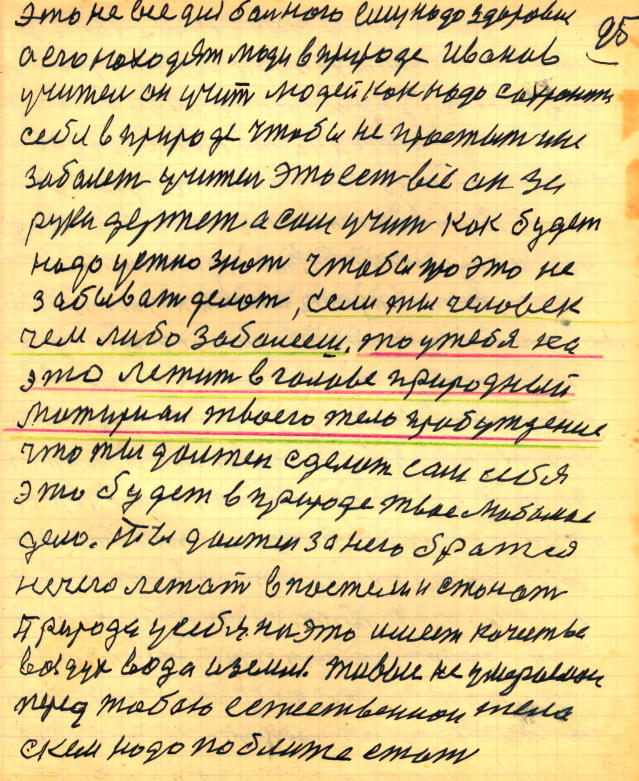 25
это не все для больного ему надо здоровие
а его находят люди в природе Иванов
учител он учит людей как надо сохранит
себя в природе чтобы не простыт и не
заболет учител это ест всё он за
руки держет а сам учит как будет
надо устно знат чтобы про это не
забыват делат, если ты человек
чем либо заболееш, то у тебя на
это лежит в голове природный
матириал твоего тело пробуждение
что ты должен сделат сам себя
это будет в природе твое любимое
дело. Ты должен за него братся
нечего лежат в постели и стонат
Природа у себя на это имеет качества
воздух вода и земля. живые не умераемои
перед тобою естественои тела
с кем надо поближе стат